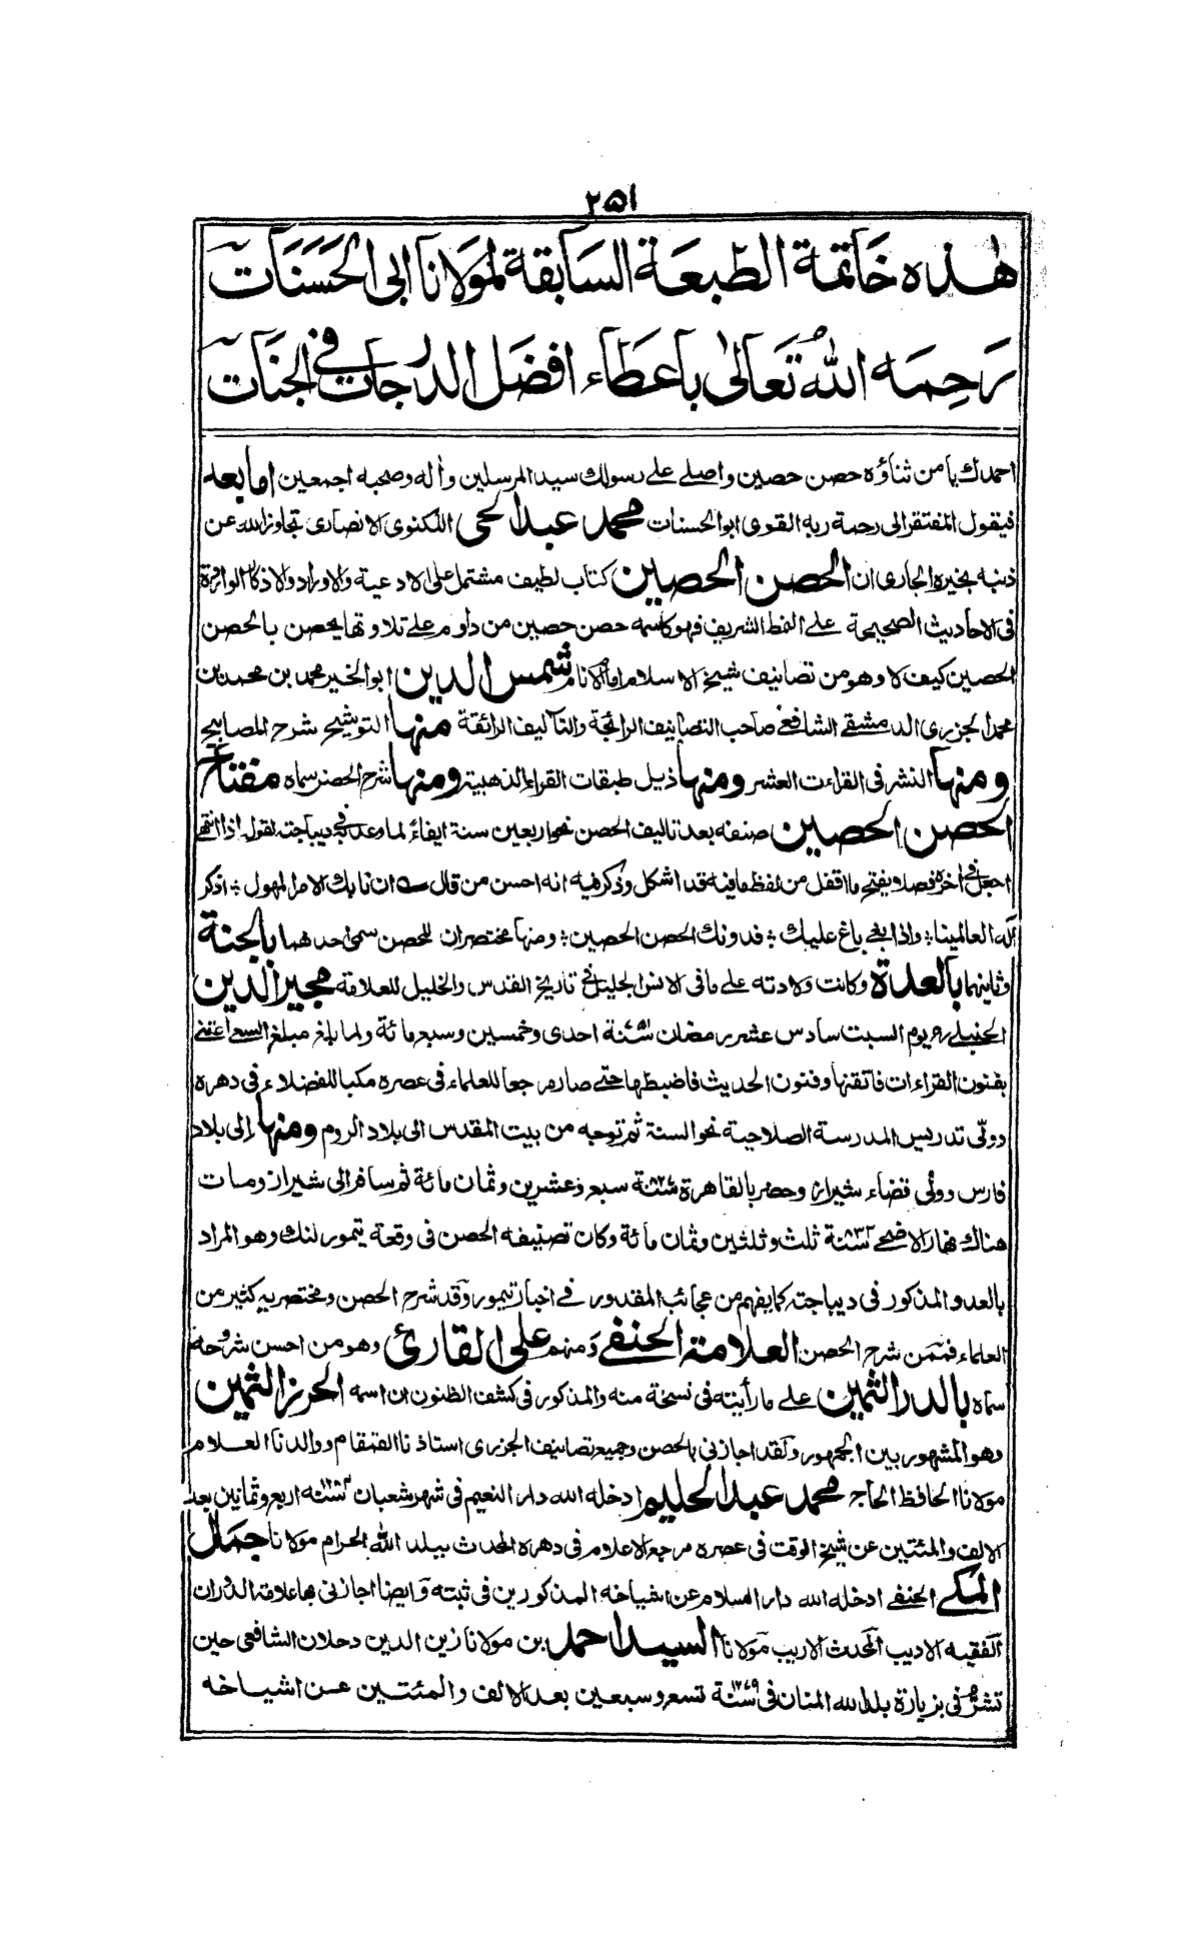 ٢٥١
هذه خاتمة الطبعة السابقة لمولانا ابى الحسنات
رحمه الله تعالى باعطاء افضل الدرجات في الجنات
احمدك يا من ثناؤه حصن حصين واصلے على رسولك سيد المرسلين واٰله وصحبه اجمعين اما بعد
فيقول المفتقر الى رحمة ربه القوى ابو الحسنات محمد عبد الحى اللكنوى الانصارى تجاوز الله عن
ذنبه بخيره الجارى ان الحصن الحصين كتاب لطيف مشتمل على الادعية والاوراد والاذكار الواردة
فى الاحاديث الصحيحة على النمط الشريف فهو كاسمه حصن حصين من داوم على تلاوتها يحصن بالحصن
الحصين كيف لا وهو من تصانيف شيخ الاسلام امام الانام شمس الدين ابو الخير محمد بن محمد بن
محمد الجزرى الدمشقے الشافعے صاحب التصانيف الرائجة والتاليف الرائقة منها التوشيح شرح المصابيح
ومنها النشر فى القراءت العشر ومنها ذيل طبقات القراء للذهبية ومنها شرح الحصن سماه مفتاح
الحصن الحصين صنفه بعد تاليف الحصن نحو اربعين سنة ايفاءً لما وعد فى ديباجته بقوله اذا انتهى
اجعل فى اخره فصلا يفتح ما اقفل من لفظ ما فيه قد اشكل وذكر فيه انه احسن من قال ان نابك الامر المهول ؛ اذكر
اله العالمينا ؛ واذا بغے باغ عليك ؛ فدونك الحصن الحصين ؛ ومنها مختصران للحصن سمى احدهما بالجنة
وثانيهما بالعدة وكانت ولادته على ما فى الانس الجليل فى تاريخ القدس والخليل للعلامة مجير الدين
الحنبلے يوم السبت سادس عشر رمضان سنة ٧٥١ احدى وخمسين وسبع مائة ولما بلغ مبلغ السعے اعتنے
بفنون القراءات فاتقنها وفنون الحديث فاضبطها حتے صار مرجعا للعلماء فى عصره مكبا للفضلاء فى دهره
وولى تدريس المدرسة الصلاحية نحو السنة ثم توجه من بيت المقدس الى بلاد الروم ومنها الى بلاد
فارس وولى قضاء شيراز وحضر بالقاهرة سنة ٨٢٧ سبع وعشرين وثمان مائة ثم سافر الى شيراز ومات
هناك نهار الاضحے سنة ٨٣٣ ثلث وثلثين وثمان مائة وكان تصنيفه الحصن فى وقعة تيمور لنك وهو المراد
بالعدو المذكور فى ديباجته كما يفهم من عجائب المقدور فے اخبار تيمور وقد شرح الحصن ومختصريه كثير من
العلماء فممن شرح الحصن العلامة الحنفے ومنهم على القارئ وهو من احسن شروحه
سماه بالدر الثمين على ما رأيته فى نسخة منه والمذكور فى كشف الظنون ان اسمه الحرز الثمين
وهو المشهور بين الجمهور ولقد اجازنى بالحصن وجميع تصانيف الجزرى استاذنا القمقام ووالدنا العلام
مولانا الحافظ الحاج محمد عبد الحليم ادخله الله دار النعيم فى شهر شعبان سنة ١٢٨٤ اربع وثمانين بعد
الالف والمئتين عن شيخ الوقت فى عصره مرجع الاعلام فى دهره المحدث ببلد الله الحرام مولانا جمال
المكے الحنفے ادخله الله دار السلام عن اشياخه المذكورين فى ثبته وايضا اجازنى بها علامة الدوران
الفقيه الاديب المحدث الاريب مولانا السيد احمد بن مولانا زين الدين دحلان الشافعى حين
تشرفى بزيارة بلد الله المنان فى سنة ١٢٧٩ تسع وسبعين بعد الالف والمئتين عن اشياخه